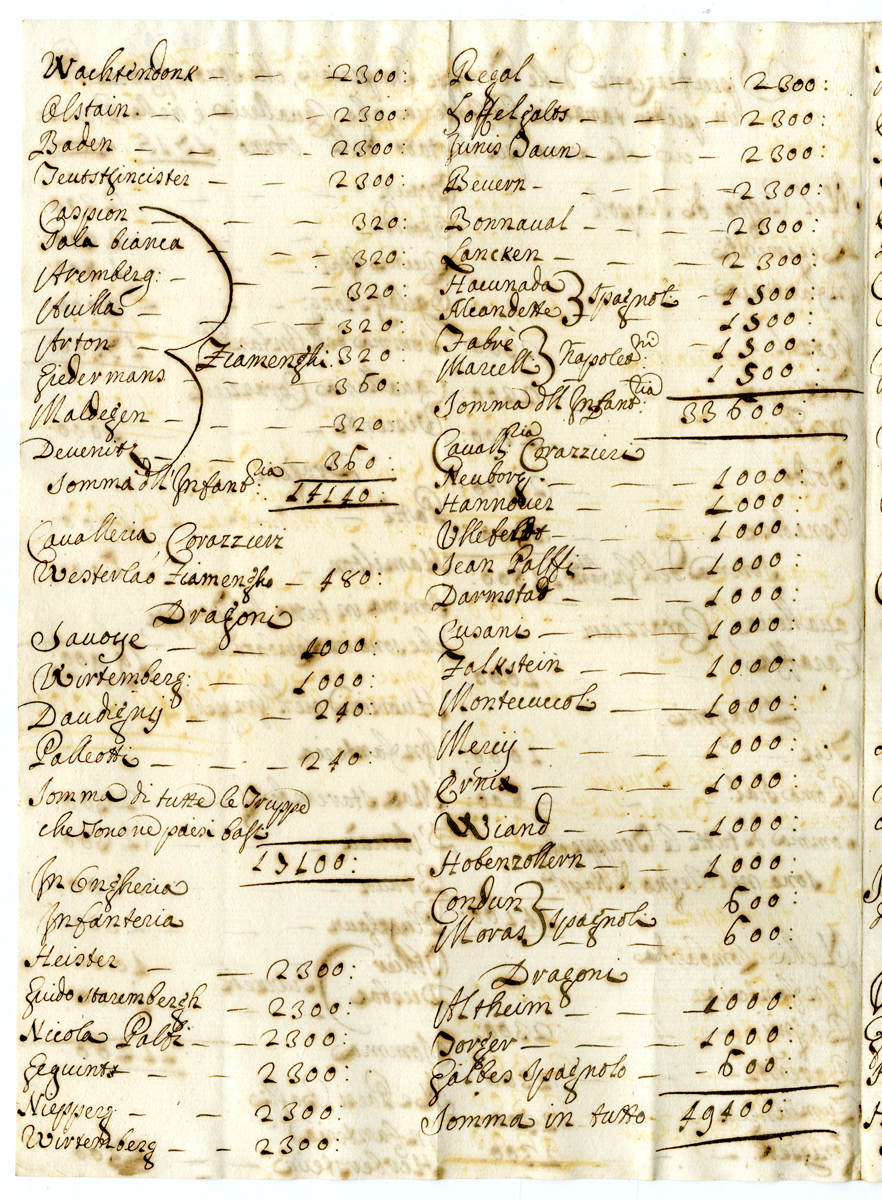 Wachtendonk - - - 2300:
Olstain. - - - 2300:
Baden - - - 2300:
Teutsthmeister - - 2300:
Caspion - - - 320:
Sala bianca - - - 320:
Aremberg: - - 320:
Auilla - - - 320:
Arton - Fiamenghi. 320:
Fiedermans - - 360:
Maldegen - - - 320:
Devenitz - - - 360:
Somma dll' Infantria: 14140:
Cavalleria, Corazzieri
Westerlao Fiamengho - 480:
Dragoni
Savoye - - - 1000:
Wirtemberg: - - 1000:
Daudignij - - - 240:
Palleotti - - - 240:
Somma di tutte le Truppe
che sono ne paesi bassi
17100:
In Ongheria
Infanteria
Heister - - - 2300:
Guido Starembergh - 2300:
Nicola Palfi - - 2300:
Geguints - - - 2300:
Niepperg - - - 2300:
Wirtemberg - - 2300:
Regal - - - 2300:
Loffelholts - - - 2300:
Junis Daun - - - 2300:
Bevern - - - 2300:
Bonnaval - - - 2300:
Lancken - - - 2300:
Hacunada - 1500:
Alcandette Spagnol. 1500:
Fabrè - 1500:
Marcell: Napoledni 1500:
Somma dll' Infantria: 33600:
Cavallria Corazzieri
Neuborg. - - - 1000:
Hannover - - - 1000:
Vllefeldt - - - 1000:
Jean Palffi - - - 1000:
Darmstad - - - 1000:
Cusani - - - 1000:
Falkstein - - - 1000:
Montecuccol. - - 1000:
Mercij - - - 1000:
Crnix - - - 1000:
Wiand - - - 1000:
Hobenzollern - - 1000:
Condun 600:
Moras Spagnoli 600:
Dragoni
Altheim - - - 1000:
Jorger - - - 1000:
Galbes Spagnolo - - 600:
Somma in tutto 49400: